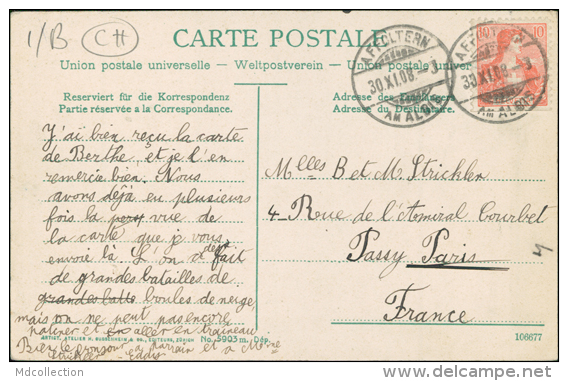 1/B CH
CARTE POSTALE
Union postale universelle – Weltpostverein – Union postale univer
Reserviert für die Korrespondenz
Partie réservée a la Correspondance.
Adresse des Empfängers
Adresse du Destinataire.
AFFOLTERN
30.XI.08.-3
AM ALBIS
AFFOLTERN
30.XI.08.-3
AM ALBIS
10
J'ai bien reçu la carte
de Berthe, et je l'en
remercie bien. Nous
avons déjà eu plusieurs
fois la vue de
la carte que je vous
envoie là. On a déjà fait
de grandes batailles de
grandes batt boules de neige
mais on ne peut pas encore
patiner et aller en traîneau
Bien le bonjour à parrain et à Mme
Strickler - Eddy
Mlles B et M Strickler
4 Rue de l'Amiral Courbet
Passy Paris
France
4
ARTIST. ATELIER H. GUGGENHEIM & CO., EDITEURS, ZÜRICH No. 5903 m. Dép.
106677
Maximum Collection delcampe.net